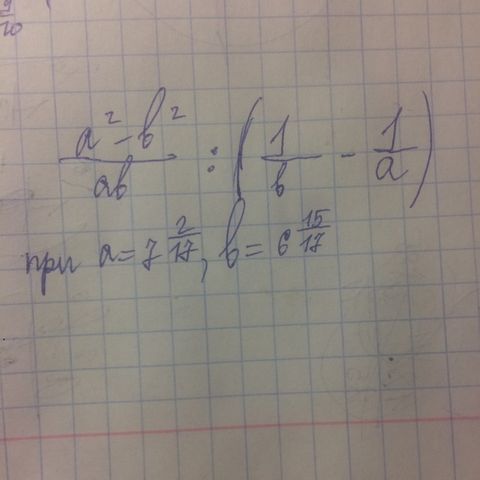 9/20
(a² - b²)/(ab) : (1/b - 1/a)
при a = 7 2/17, b = 6 15/17